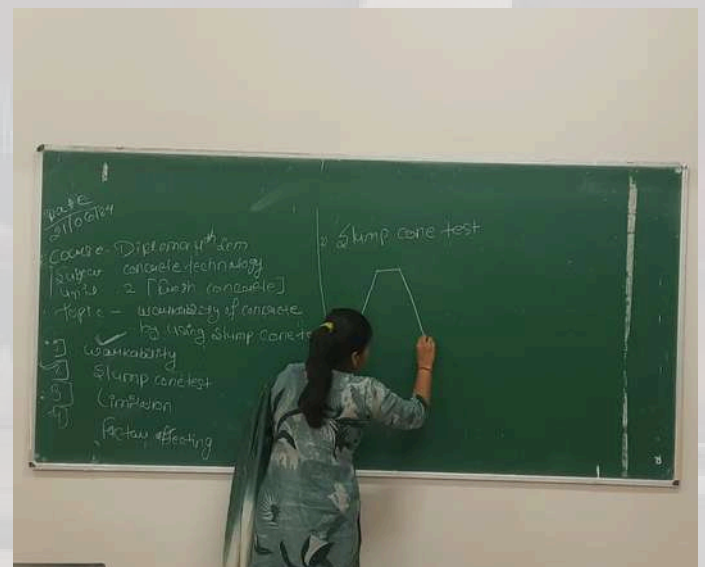 Date
21/06/24
Course - Diploma 4th Sem
Subject concrete technology
Unit - 2 [Fresh concrete]
Topic - workability of concrete
by using slump cone te
1] workability
2] Slump cone test
3] Limitation
4] factory affecting
Slump cone test